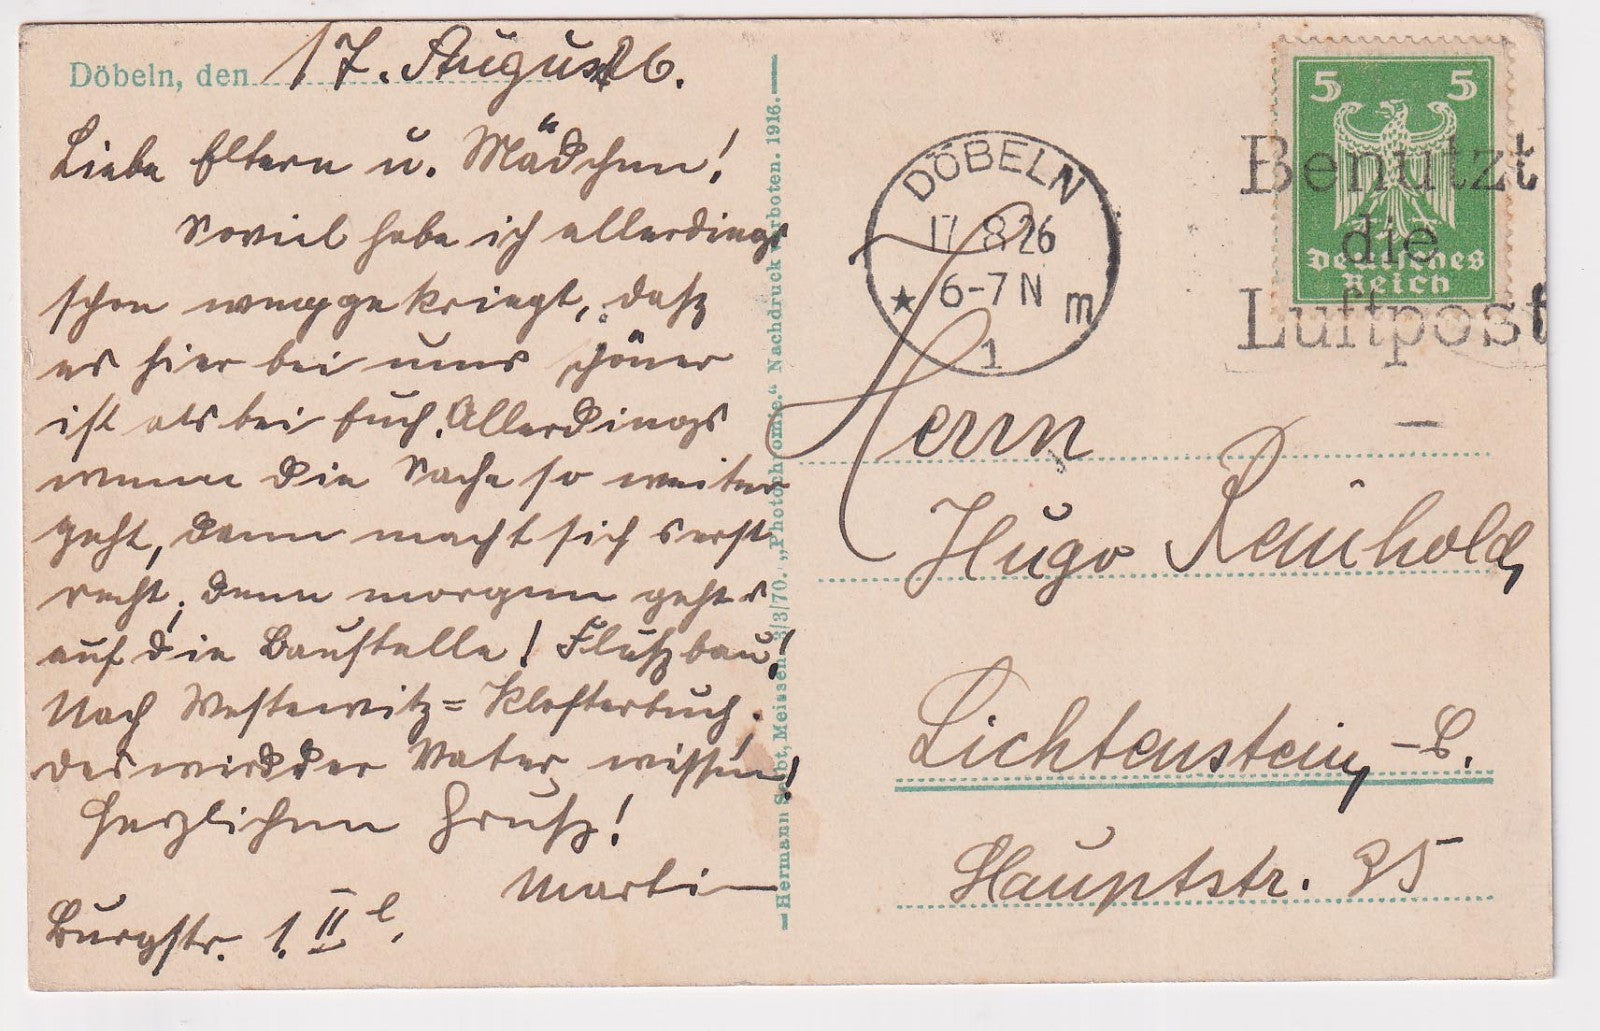 Döbeln, den 17. August 26.
Liebe Eltern u. Mädchen!
Soviel habe ich allerdings
schon weggekriegt, daß
es hier bei uns schöner
ist als bei Euch. Allerdings
wenn die Sache so weiter
geht, dann macht sichs erst
recht, denn morgen gehts
auf die Baustelle! Flußbau!
Nach Westewitz=Klosterbuch.
Das wird der Vater wissen!
Herzlichen Gruß!
Martin
Burgstr. 1. II l.
Hermann Seibt, Meissen. 3/3/70. „Photochromie.“ Nachdruck verboten. 1916.
DÖBELN
17.8.26
6-7 N
m
1
5 5
Deutsches
Reich
Benutzt
die
Luftpost
Herrn
Hugo Reinhold,
Lichtenstein, -C.
Hauptstr. 35